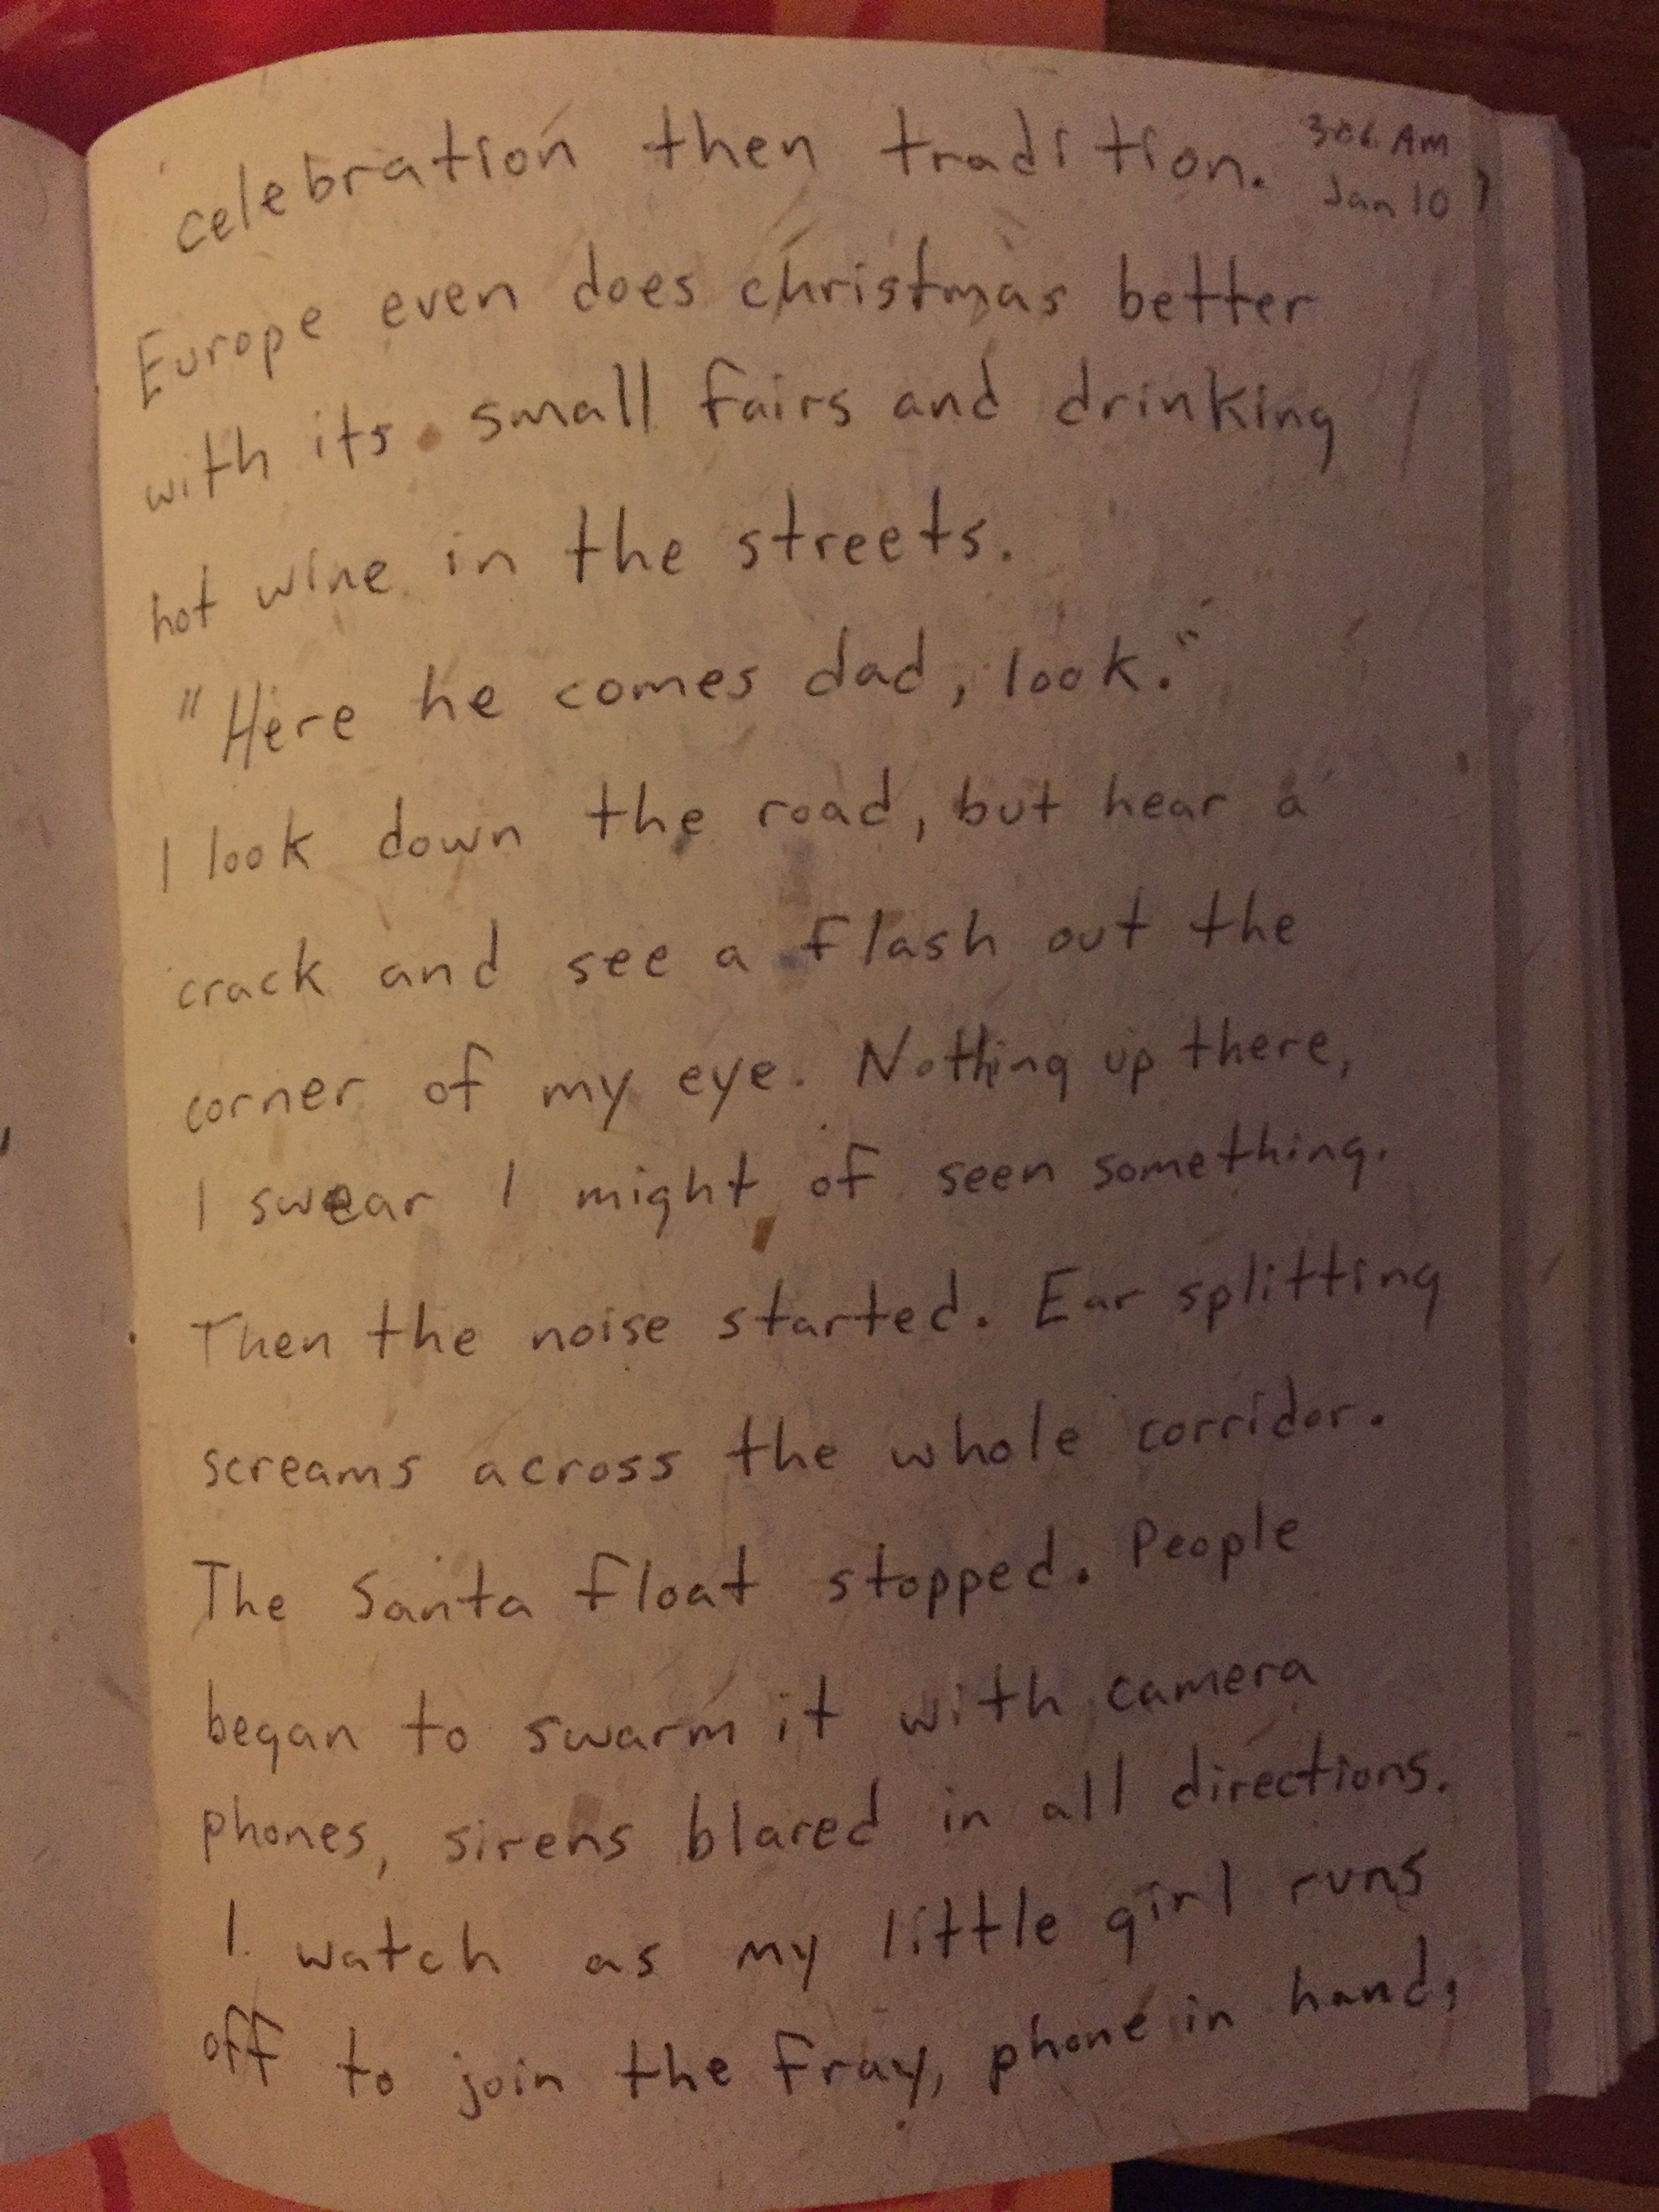 celebration then tradition. 306 AM
Jan 10
Europe even does christmas better
with its small fairs and drinking
hot wine in the streets.
"Here he comes dad, look."
I look down the road, but hear a
crack and see a flash out the
corner of my eye. Nothing up there,
I swear I might of seen something.
Then the noise started. Ear splitting
screams across the whole corridor.
The Santa float stopped. People
began to swarm it with camera
phones, sirens blared in all directions.
I watch as my little girl runs
off to join the fray, phone in hand,